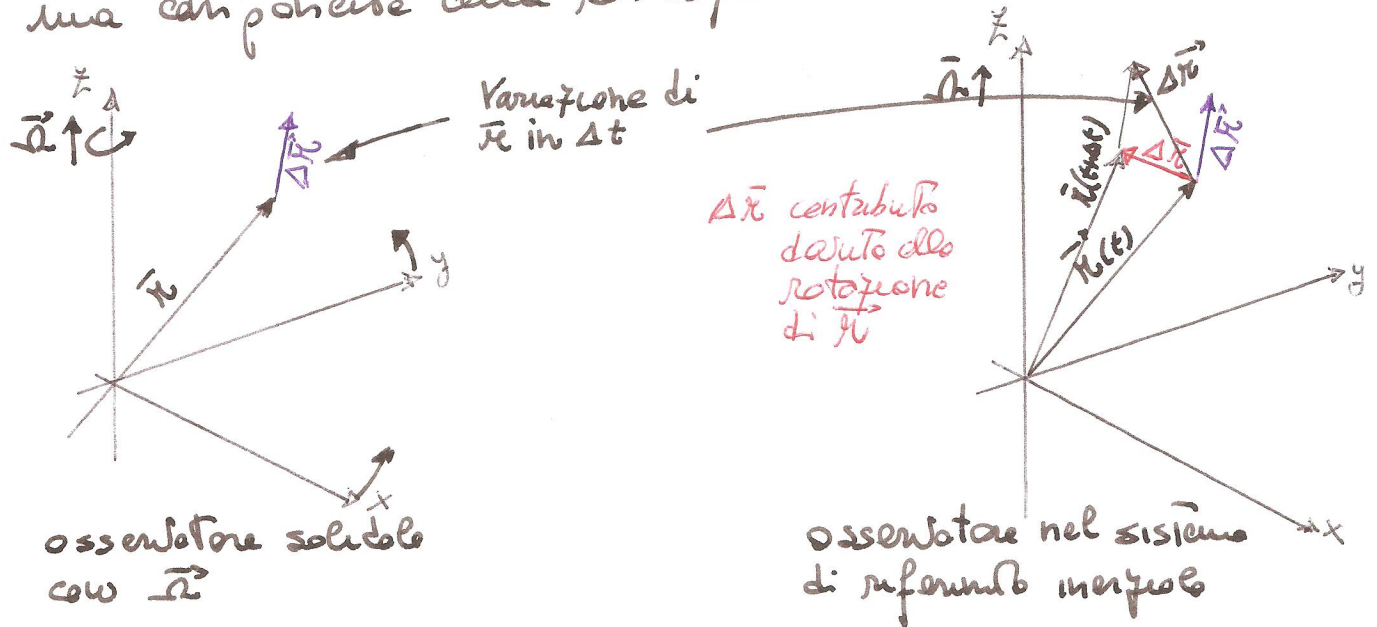 una componente
Z
Ω⃗
Δr⃗
r⃗
y
x
Variazione di
r̄ in Δt
osservatore solidale
con Ω⃗
Z
Ω̄
Δr⃗
Δr⃗
Δr̄
r̄(t+Δt)
r⃗(t)
y
x
Δr̄ contributo
dovuto alla
rotazione
di r⃗
osservatore nel sistema
di riferimento inerziale